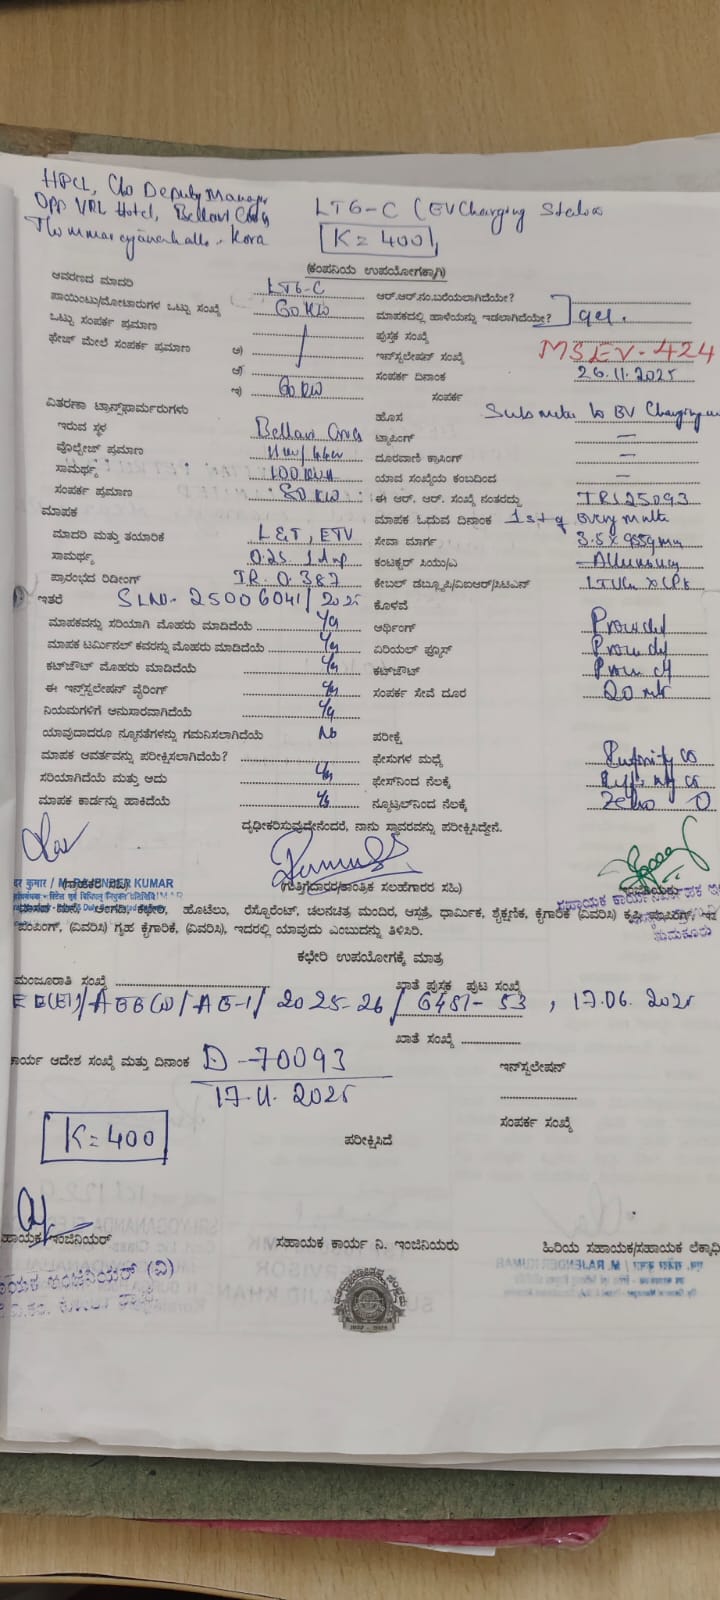 HPCL, C/o Deputy Manager
Opp VRL Hotel, Bellavi Cross
Kora
LT6-C (EV Charging Station
K = 400
(ಕಂಪನಿಯ ಉಪಯೋಗಕ್ಕಾಗಿ)
ಆವರಣದ ಮಾದರಿ LT6-C ಆರ್.ಆರ್.ನಂ.ಬರೆಯಲಾಗಿದೆಯೇ?
ಪಾಯಿಂಟು/ಮೋಟಾರುಗಳ ಒಟ್ಟು ಸಂಖ್ಯೆ 60 KW ಮಾಪಕದಲ್ಲಿ ಹಾಳೆಯನ್ನು ಇಡಲಾಗಿದೆಯೇ?
ಒಟ್ಟು ಸಂಪರ್ಕ ಪ್ರಮಾಣ ಪುಸ್ತಕ ಸಂಖ್ಯೆ
ಫೇಜ್ ಮೇಲೆ ಸಂಪರ್ಕ ಪ್ರಮಾಣ ಅ) ಇನ್‌ಸ್ಟಲೇಷನ್ ಸಂಖ್ಯೆ MSEV-424
ಆ) ಸಂಪರ್ಕ ದಿನಾಂಕ 26.11.2025
ಇ) 60 KW ಸಂಪರ್ಕ
ವಿತರಣಾ ಟ್ರಾನ್ಸ್‌ಫಾರ್ಮರುಗಳು ಹೊಸ Sub meter to EV Charging
ಇರುವ ಸ್ಥಳ Bellavi Cross ಟ್ಯಾಪಿಂಗ್ —
ವೋಲ್ಟೇಜ್ ಪ್ರಮಾಣ ದೂರವಾಣಿ ಕ್ರಾಸಿಂಗ್ —
ಸಾಮರ್ಥ್ಯ 100 KVA ಯಾವ ಸಂಖ್ಯೆಯ ಕಂಬದಿಂದ —
ಸಂಪರ್ಕ ಪ್ರಮಾಣ 80 KW ಈ ಆರ್. ಆರ್. ಸಂಖ್ಯೆ ನಂತರದ್ದು TRS25093
ಮಾಪಕ ಮಾಪಕ ಓದುವ ದಿನಾಂಕ 1st of every
ಮಾದರಿ ಮತ್ತು ತಯಾರಿಕೆ L&T, ETV ಸೇವಾ ಮಾರ್ಗ
ಸಾಮರ್ಥ್ಯ ಕಂಡಕ್ಟರ್ ಸಿಯು/ಎ
ಪ್ರಾರಂಭದ ರಿಡೀಂಗ್ IR. 0.387 ಕೇಬಲ್ ಡಬ್ಲ್ಯೂಪಿ/ವಿಐಆರ್/ಸಿಟಿಎನ್
ಇತರೆ SLNO- 25006041/2025 ಕೊಳವೆ
ಮಾಪಕವನ್ನು ಸರಿಯಾಗಿ ಮೊಹರು ಮಾಡಿದೆಯೆ Yes ಅರ್ಥಿಂಗ್ Provided
ಮಾಪಕ ಟರ್ಮಿನಲ್ ಕವರನ್ನು ಮೊಹರು ಮಾಡಿದೆಯೆ Yes ಏರಿಯಲ್ ಫ್ಯೂಸ್ Provided
ಕಟ್‌ಔಟ್ ಮೊಹರು ಮಾಡಿದೆಯೆ Yes ಕಟ್‌ಔಟ್ Provided
ಈ ಇನ್‌ಸ್ಟಲೇಷನ್ ವೈರಿಂಗ್ Yes ಸಂಪರ್ಕ ಸೇವೆ ದೂರ 20 mtr
ನಿಯಮಗಳಿಗೆ ಅನುಸಾರವಾಗಿದೆಯೆ Yes
ಯಾವುದಾದರೂ ನ್ಯೂನತೆಗಳನ್ನು ಗಮನಿಸಲಾಗಿದೆಯೆ No ಪರೀಕ್ಷೆ
ಮಾಪಕ ಆವರ್ತವನ್ನು ಪರೀಕ್ಷಿಸಲಾಗಿದೆಯೆ? ಫೇಸುಗಳ ಮಧ್ಯೆ Infinity
ಸರಿಯಾಗಿದೆಯೆ ಮತ್ತು ಅದು Yes ಫೇಸ್‌ನಿಂದ ನೆಲಕ್ಕೆ Infinity
ಮಾಪಕ ಕಾರ್ಡನ್ನು ಹಾಕಿದೆಯೆ Yes ನ್ಯೂಟ್ರಲ್‌ನಿಂದ ನೆಲಕ್ಕೆ Zero 0
ದೃಢೀಕರಿಸುವುದೇನೆಂದರೆ, ನಾನು ಸ್ಥಾವರವನ್ನು ಪರೀಕ್ಷಿಸಿದ್ದೇನೆ.
कुमार / M. RAJENDER KUMAR (ಗುತ್ತಿಗೆದಾರರ/ತಾಂತ್ರಿಕ ಸಲಹೆಗಾರರ ಸಹಿ)
ತುಮಕೂರು
ಅಂಗಡಿ, ಕಛೇರಿ, ಹೋಟೆಲು, ರೆಸ್ಟೋರೆಂಟ್, ಚಲನಚಿತ್ರ ಮಂದಿರ, ಆಸ್ಪತ್ರೆ, ಧಾರ್ಮಿಕ, ಶೈಕ್ಷಣಿಕ, ಕೈಗಾರಿಕೆ (ವಿವರಿಸಿ) ಕೃಷಿ
ಪಂಪಿಂಗ್, (ವಿವರಿಸಿ) ಗೃಹ ಕೈಗಾರಿಕೆ, (ವಿವರಿಸಿ), ಇದರಲ್ಲಿ ಯಾವುದು ಎಂಬುದನ್ನು ತಿಳಿಸಿರಿ.
ಕಛೇರಿ ಉಪಯೋಗಕ್ಕೆ ಮಾತ್ರ
ಮಂಜೂರಾತಿ ಸಂಖ್ಯೆ ಖಾತೆ ಪುಸ್ತಕ ಪುಟ ಸಂಖ್ಯೆ
EE(El)/AEE(O)/AE-1/2025-26/6481-53, 17.06.2025
ಖಾತೆ ಸಂಖ್ಯೆ
ಕಾರ್ಯ ಆದೇಶ ಸಂಖ್ಯೆ ಮತ್ತು ದಿನಾಂಕ D-70093 ಇನ್‌ಸ್ಟಲೇಷನ್
17.11.2025
ಸಂಪರ್ಕ ಸಂಖ್ಯೆ
K = 400
ಪರೀಕ್ಷಿಸಿದೆ
ಸಹಾಯಕ ಇಂಜಿನಿಯರ್ ಸಹಾಯಕ ಕಾರ್ಯ ನಿ. ಇಂಜಿನಿಯರು ಹಿರಿಯ ಸಹಾಯಕ/ಸಹಾಯಕ ಲೆಕ್ಕಾಧಿ
ಸಹಾಯಕ ಇಂಜಿನಿಯರ್ (ವಿ)